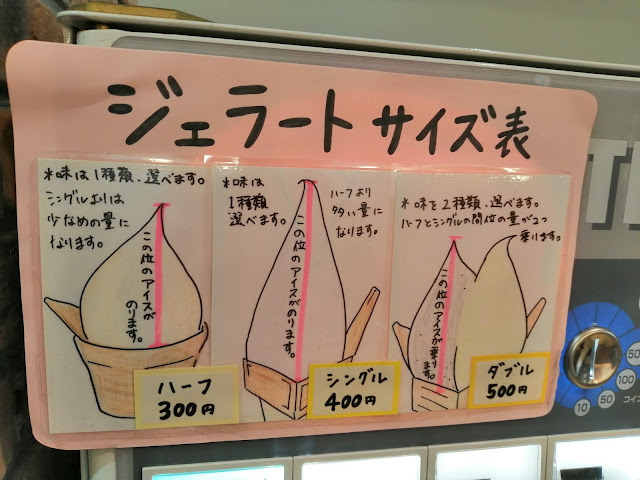 ジェラートサイズ表
*味は1種類、選べます。
シングルよりは
少なめの量に
なります。
この位のアイスが
のります。
ハーフ
300円
*味は
1種類
選べます。
ハーフより
多い量に
なります。
この位のアイスがのります。
シングル
400円
*味を2種類、選べます。
ハーフとシングルの間位の量が2つ
乗ります。
この位のアイスが乗ります。
ダブル
500円
50
100
50
10
コイン